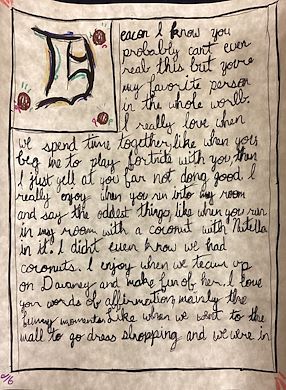 Deacon I know you
probably cant even
read this but you're
my favorite person
in the whole world.
I really love when
we spend time together, like when you
beg me to play fortnite with you then
I just yell at you for not doing good. I
really enjoy when you run into my room
and say the oddest things like when you run
in my room with a coconut with Nutella
in it. I didnt even know we had
coconuts. I enjoy when we team up
on Dawney and make fun of her. I love
your words of affirmation, mainly the
funny moments. Like when we went to the
mall to go dress shopping and we were in